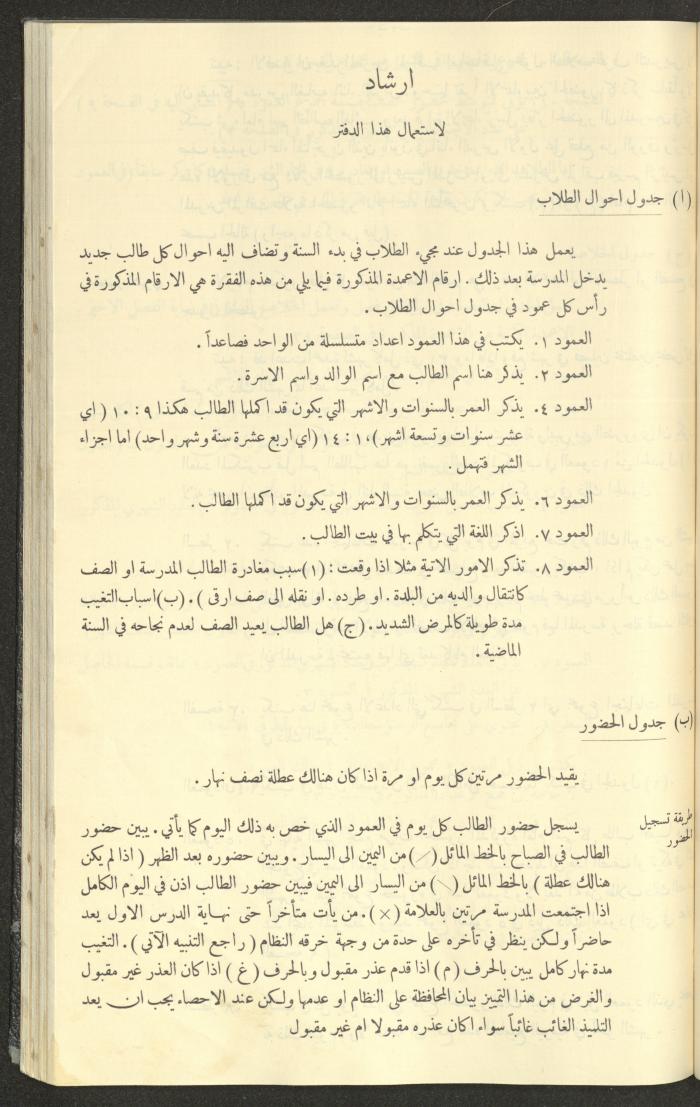 ارشاد
لاستعمال هذا الدفتر
(ا) جدول احوال الطلاب
يعمل هذا الجدول عند مجيء الطلاب في بدء السنة وتضاف اليه احوال كل طالب جديد
يدخل المدرسة بعد ذلك . ارقام الاعمدة المذكورة فيما يلي من هذه الفقرة هي الارقام المذكورة في
رأس كل عمود في جدول احوال الطلاب .
العمود ١. يكتب في هذا العمود اعداد متسلسلة من الواحد فصاعداً .
العمود ٢. يذكر هنا اسم الطالب مع اسم الوالد واسم الاسرة .
العمود ٤. يذكر العمر بالسنوات والاشهر التي يكون قد اكملها الطالب هكذا ٩ : ١٠ ( اي
عشر سنوات وتسعة اشهر )، ١ : ١٤ (اي اربع عشرة سنة وشهر واحد) اما اجزاء
الشهر فتهمل .
العمود ٦. يذكر العمر بالسنوات والاشهر التي يكون قد اكملها الطالب .
العمود ٧. اذكر اللغة التي يتكلم بها في بيت الطالب .
العمود ٨. تذكر الامور الاتية مثلا اذا وقعت : (١)سبب مغادرة الطالب المدرسة او الصف
كانتقال والديه من البلدة . او طرده . او نقله الى صف ارقى ) . (ب)اسباب التغيب
مدة طويلة كالمرض الشديد . (ج) هل الطالب يعيد الصف لعدم نجاحه في السنة
الماضية .
(ب) جدول الحضور
يقيد الحضور مرتين كل يوم او مرة اذا كان هنالك عطلة نصف نهار .
طريقة تسجيل
الحضور
يسجل حضور الطالب كل يوم في العمود الذي خص به ذلك اليوم كما يأتي . يبين حضور
الطالب في الصباح بالخط المائل (/) من اليمين الى اليسار . ويبين حضوره بعد الظهر ( اذا لم يكن
هنالك عطلة ) بالخط المائل (\) من اليسار الى اليمين فيبين حضور الطالب اذن في اليوم الكامل
اذا اجتمعت المدرسة مرتين بالعلامة (×) . من يأت متأخراً حتى نهاية الدرس الاول يعد
حاضراً ولكن ينظر في تأخره على حدة من وجهة خرقه النظام ( راجع التنبيه الآتي ) . التغيب
مدة نهار كامل يبين بالحرف (م) اذا قدم عذر مقبول وبالحرف (غ) اذا كان العذر غير مقبول
والغرض من هذا التمييز بيان المحافظة على النظام او عدمها ولكن عند الاحصاء يجب ان يعد
التلميذ الغائب غائباً سواء اكان عذره مقبولا ام غير مقبول